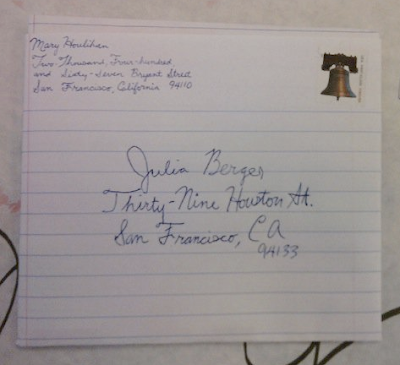 Mary Houlihan
Two-Thousand, Four-hundred,
and Sixty-Seven Bryant Street
San Francisco, California 94110
Julia Berger
Thirty-Nine Houston St.
San Francisco, CA
94133